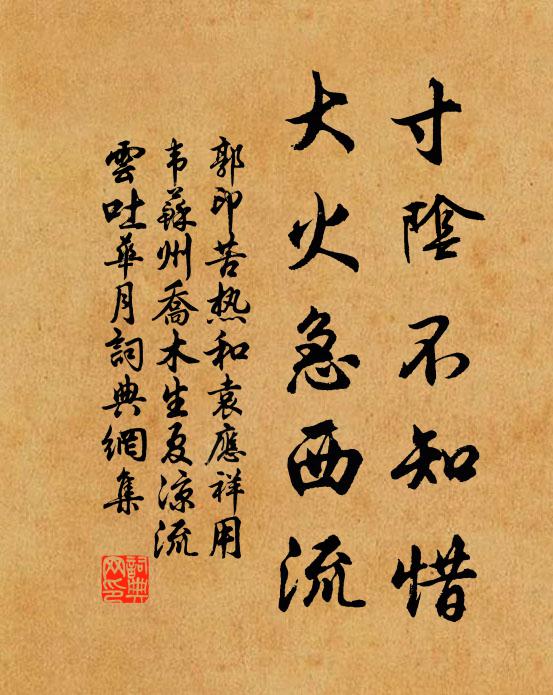 寸陰不知惜
大火急西流
郭印苦热和袁應祥用
韦蘇州喬木生夏凉流
雲吐華月詞典網集
詞典网印